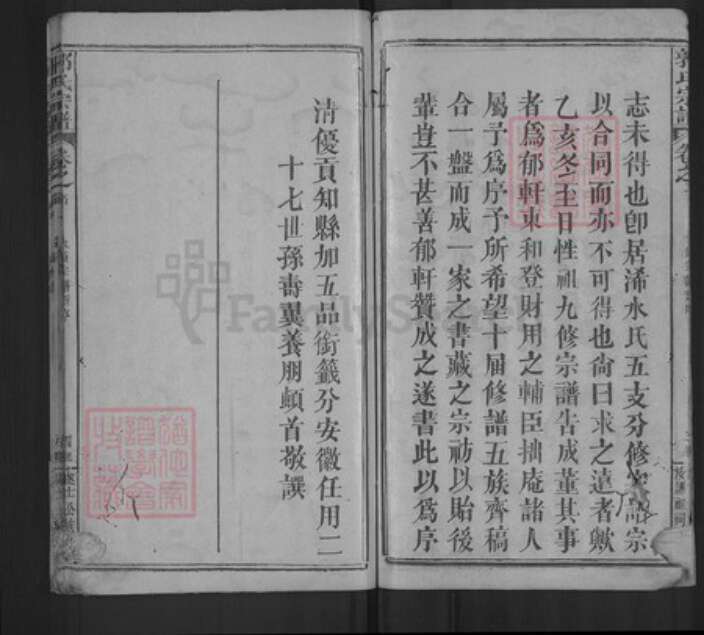 郭氏宗譜
卷之一
志未得也卽居浠水氏五支分修宗譜宗
以合同而亦不可得也尙曰求之遠者歟
乙亥冬至日性祖九修宗譜告成董其事
者爲郁軒東和登財用之輔臣拙庵諸人
屬予爲序予所希望十届修譜五族齊稿
合一盤而成一家之書藏之宗祊以貽後
輩豈不甚善郁軒贊成之遂書此以爲序
清優貢知縣加五品銜籤分安徽任用二
十七世孫壽翼養朋頓首敬譔
郭氏宗譜
卷之一
FamilySearch